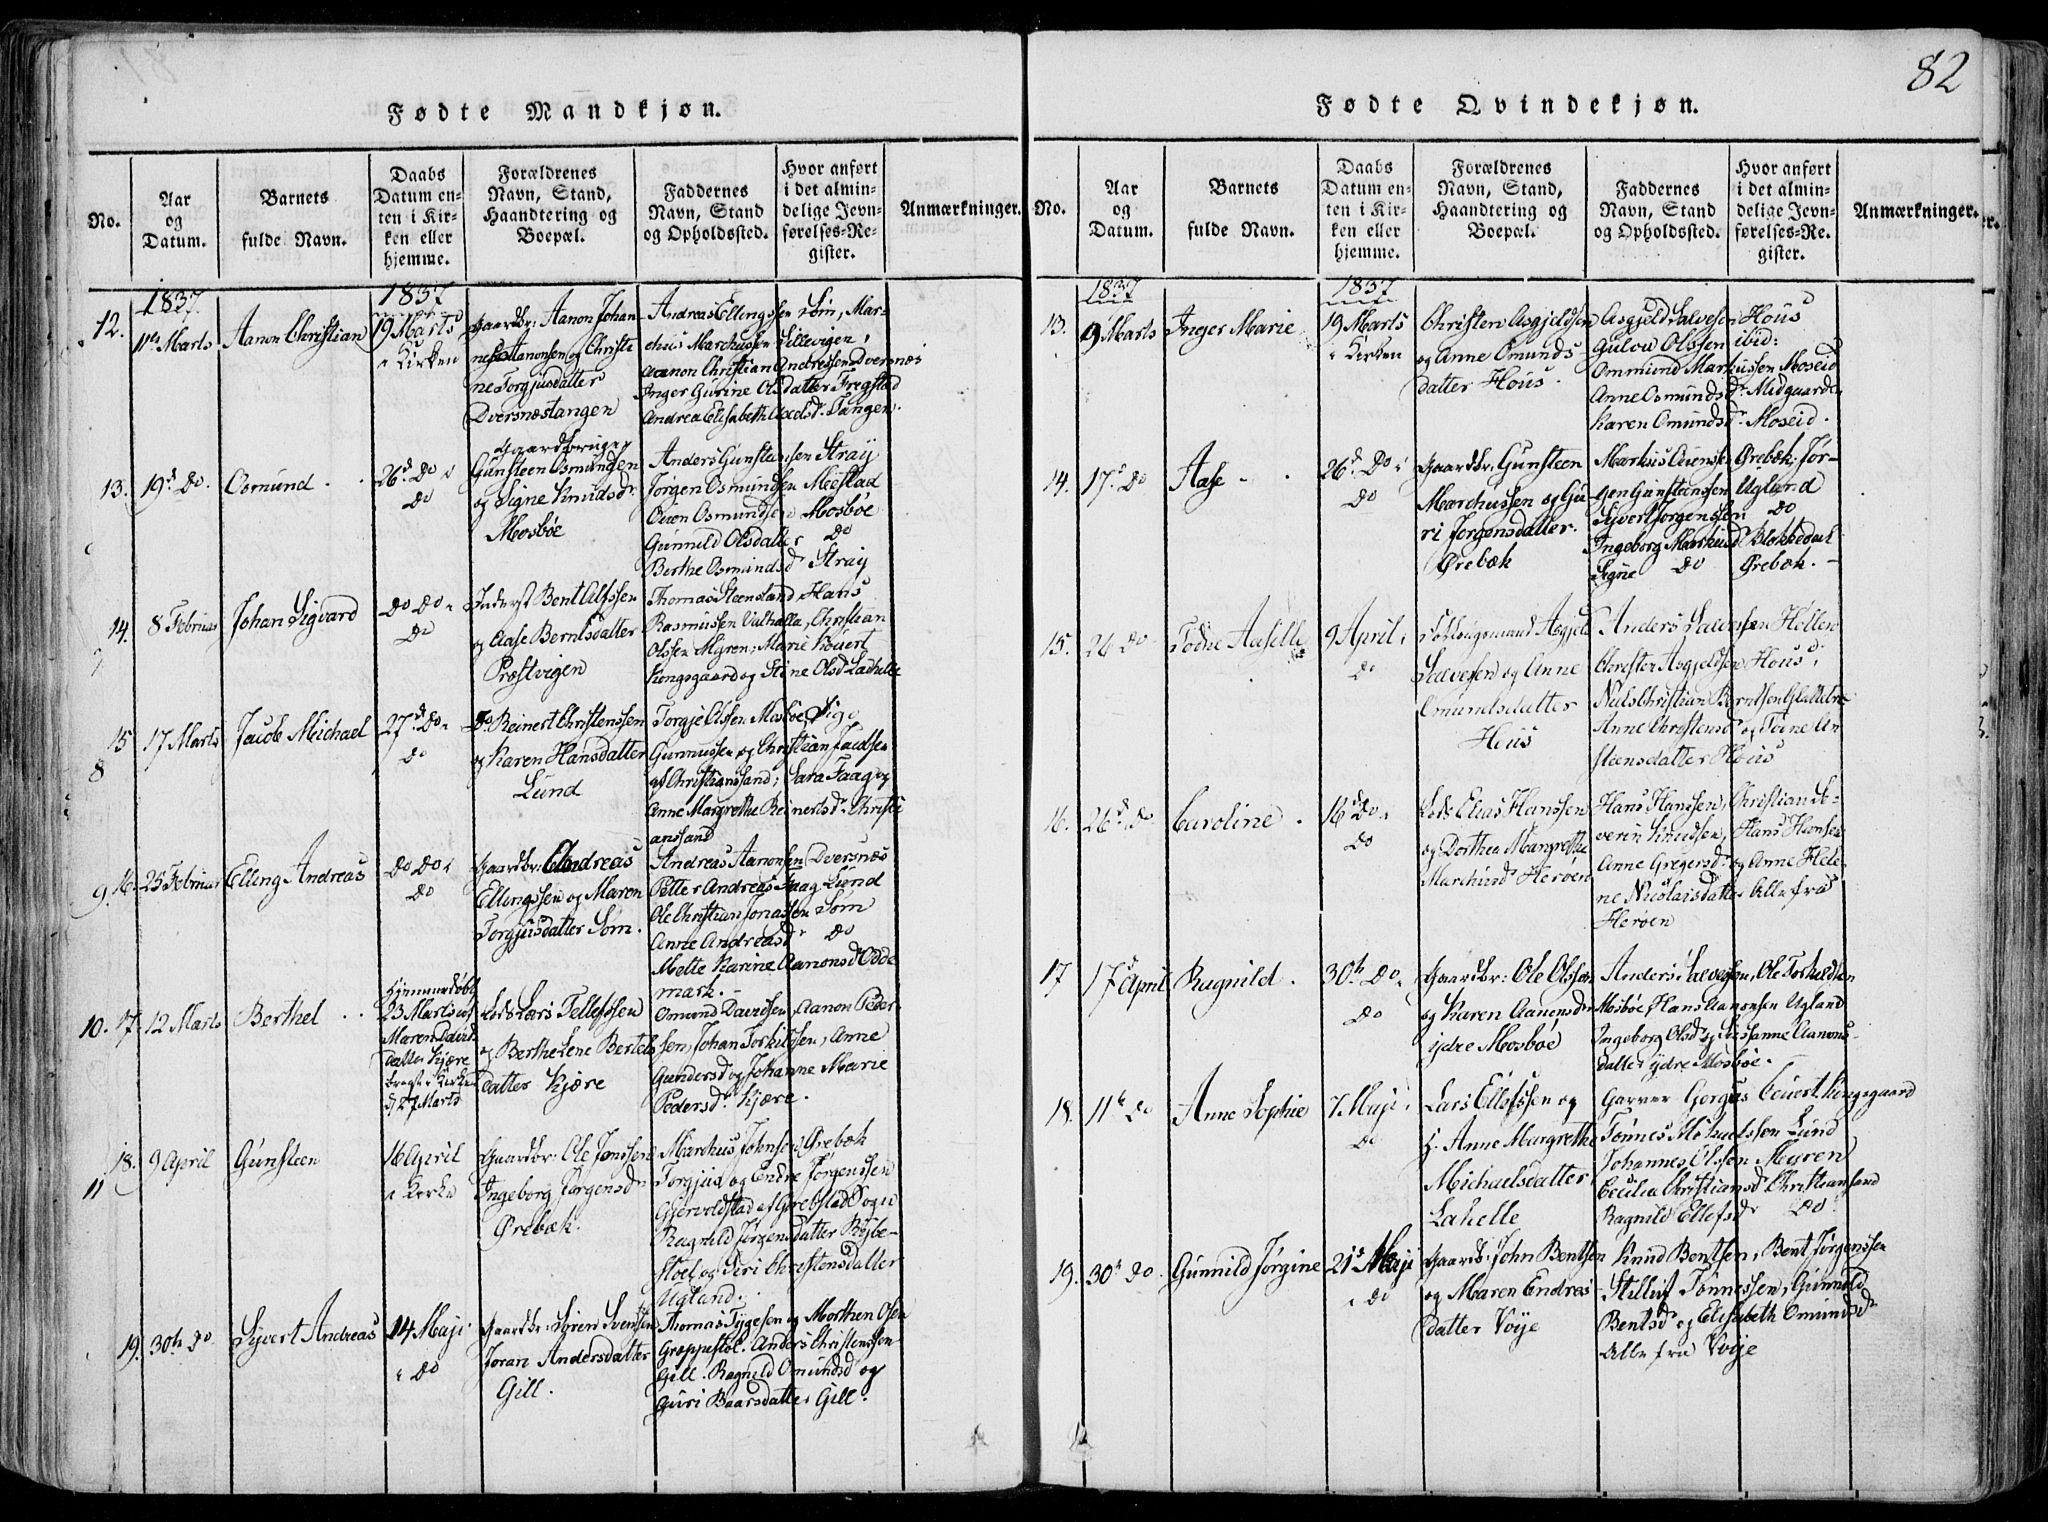 82
Fødte Mandkjøn.
No.
Aar
og
Datum.
Barnets
fulde Navn.
Daabs
Datum en-
ten i Kir-
ken eller
hjemme.
Forældrenes
Navn, Stand,
Haandtering og
Boepæl.
Faddernes
Navn, Stand
og Opholdssted.
Hvor anført
i det almin-
delige Jevn-
førelses-Re-
gister.
Anmærkninger.
12.
1837.
11te Marts
Aanon Christian
1837
19 Marts
i Kirken
Gaardbr: Aanon Johan-
nes Aanonsen og Christi
ne Torgjusdatter
Dversnæstangen
Andreas Ellingssen Søm, Mar-
chus Marchussen Lillevigen,
Aanon Christian Andreassen Dversnæs
Inger Gurine Olsdatter Fregstad
Andrea Elisabeth Axelsd. Tangen.
13.
19d Do.
Osmund
26d Do i
Do
Gaardbruger
Gunsteen Osmundsen
og Signe Knudsdr
Mosbøe
Anders Gunstensen Stray
Jørgen Osmundsen Meestad
Osmundsen Mosbøe
Gunnild Olsdatter Do
Berthe Osmundsd Stray
14.
8 Februar
Johan Sigvard
Do Do i
Do
Inderst Bent Alfssen
og Aase Berntsdatter
Præstvigen
Thomas Steensland Hans
Rasmussen Valhalla, Christian
Olssen Myren; Marie
Kongsgaard og Stine Olsd Lahelle
15
8
17 Marts
Jacob Michael
27d Do i
Do
Do Reinert Christenssen
og Karen Hansdatter
Lund
Torgje Olssen Mosbøe,
Gunnussen og Christian
af Christianssand; Sara Faag og
Anne Margrethe Reinertsdr Christi
anssand
9.
16.
25 Februar
Elling Andreas
Do Do i
Do
Gaardbr: Andreas
Ellingssen og Maren
Torgjusdatter Søm.
Andreas Aanonsen Dversnæs
Petter Andreas Faag Lund
Ole Christian Jonassen Søm
Anne Andreasdr Do
Mette Karine Aanonsd Odde
mark.
10.
17.
12 Marts
Berthel
Hjemmedøbt
23 Marts af
Maren David
datter Kjære
bragt i Kirken
d 27 Marts
Lods Lars Tellefssen
og Berthe Lene Bertels
datter Kjære
Omund Davidsen, Aanon Peder-
sen, Johan Torkildsen, Anne
Gundersd og Johanne Marie
Pedersdr Kjære.
11
18.
9 April
Gunsteen
16 April
i Kirke
Gaardbr: Ole Jonssen
Ingeborg Jørgensdr
Ørebæk.
Marchus Johnsen Ørebæk
Torgjus og Endre Jørgenssen
Gjervoldstad af Grebstad Sogn
Ragnild Jørgensdatter Røjbe-
stoel og Siri Christensdatter
Ugland.
19.
30te Do
Syvert Andreas
14 Maji
i Do
Gaardbr: Søren Svensen
Joran Andersdatter
Gill.
Thomas Tygesen og Morthen Osen
Groppestøl. Anders Christenssen
Gill. Ragnild Omundsd og
Guri Baarsdatter Gill.
Fødte Qvindekjøn.
No.
Aar
og
Datum.
Barnets
fulde Navn.
Daabs
Datum en-
ten i Kir-
ken eller
hjemme.
Forældrenes
Navn, Stand,
Haandtering og
Boepæl.
Faddernes
Navn, Stand
og Opholdssted.
Hvor anført
i det almin-
delige Jevn-
førelses-Re-
gister.
Anmærkninger.
13.
1837
9 Marts
Inger Marie
1837
19 Marts
i Kirken
Christen Asgjeldsen
og Anne Omunds-
datter Hous.
Asgjeld Salvesen Hous
Gulov Olssen ibid:
Ommund Markussen Moseid
Anne Osmundsdr Midgaarden
Karen Osmundsdr Moseid.
14.
17d Do
Aase
26d Do i
Do
Gaardbr: Gunsteen
Marchussen og Gu
ri Jørgensdatter.
Ørebæk
Markus Ørebæk. Jør-
gen Gunsteenssen Ugland
Syvert Jørgenssen Do
Ingeborg Markusd
Signe Do Ørebæk.
15.
26 Do
Todne Aaselle
9 April i
Do
Asgjeld
Salvesen og Anne
Omundsdatter
Hous
Anders Salvesen Høllen
Christen Asgjeldsen Hous,
Niels Christian Berntsen
Anne Christensd og Tone An
steensdatter Hous
16.
26d Do
Caroline
16d Do i
Do
Lods Elias Hanssen
og Dorthea Margrethe
Marchusd Herøen
Hans Hanssen, Christian Se-
verin Knudsen, Hans Hansen
Anne Gregersdr og Anne Hele-
ne Nicolaisdatter Alle fra
Herøen
17
17d April
Ragnild
30te Do i
Do
Gaardbr: Ole Olssen
og Karen Aanensdr
ydre Mosbøe
Anders Salvesen, Ole Torkeldsen
Mosbøe, Hans Aanonsen Ugland
Ingeborg Olsd og Susanne Aanons-
datter ydre Mosbøe.
18.
11te Do
Anne Sophie
7 Maji i
Do
Lars Ellefssen og
H. Anne Margrethe
Michaelsdatter
Lahelle
Garver Gorgus Kongsgaard
Tønnes Michaelssen Lund
Johannes Olssen Myren
Cecilia Christiansd Christiansand
Ragnild Ellefsdr Do
19.
30te Do.
Gunnild Jørgine
21d Maji
i Do
Gaardbr: John Bentsen
og Maren Endres-
datter Voje
Knud Bentsen, Bent Jørgenssen
Stillu Tønnessen, Gunnild
Bentsd og Elisabeth Omundsdr
Alle fra Voje